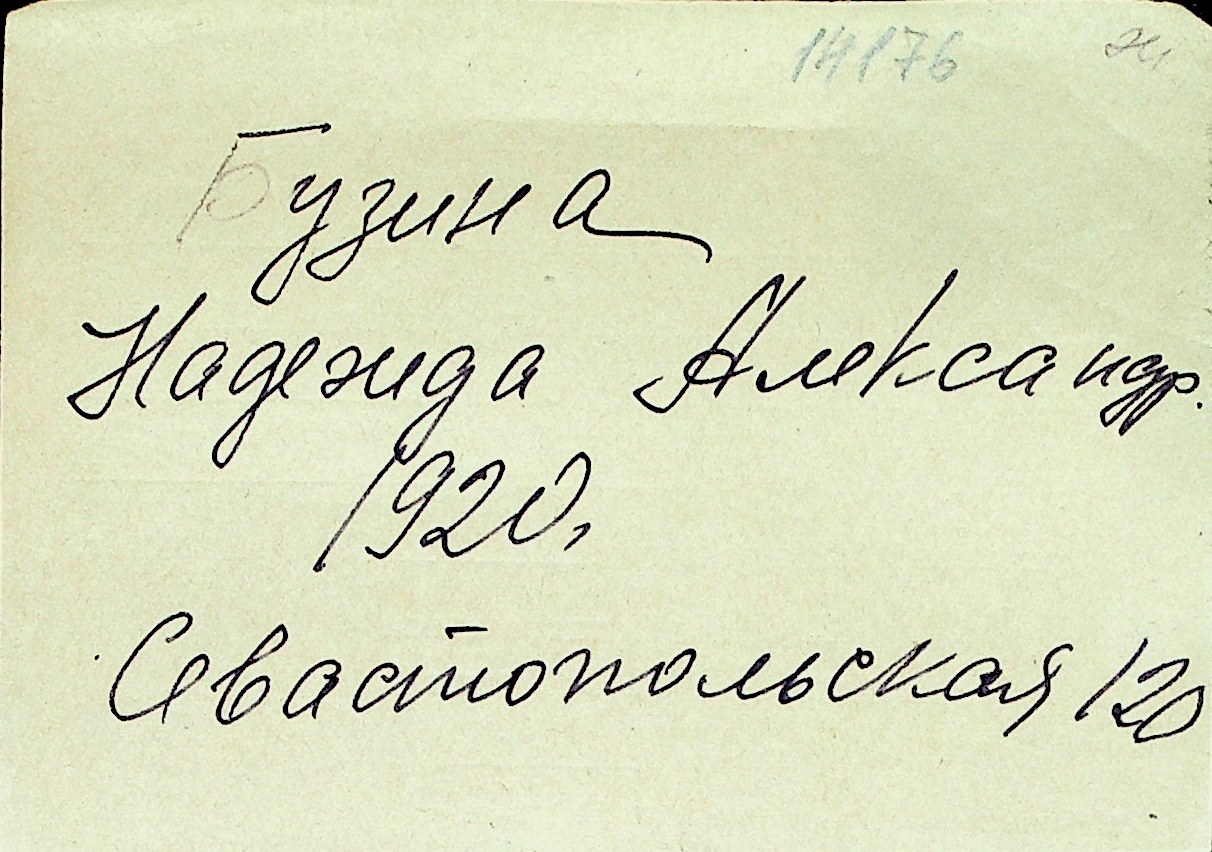 14176 ж
Бузина
Надежда Александр.
1920,
Севастопольская 120